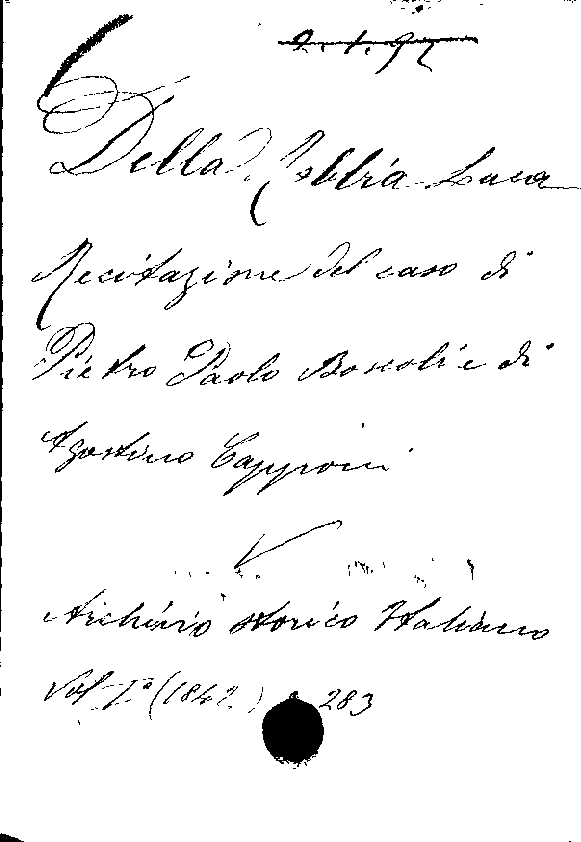 2.1.92
Della Robbia Luca
Recitazione del caso di
Pietro Paolo Boscoli e di
Agostino Capponi
Archivio storico Italiano
Vol I° (1842) 283